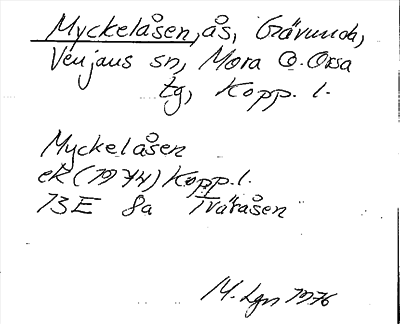 Myckelåsen, ås, Gävunda,
Venjans sn, Mora o. Orsa
tg, Kopp. l.
Myckelåsen
ek (1974) Kopp. l.
13E 8a Tväråsen
M. Lgn 1976